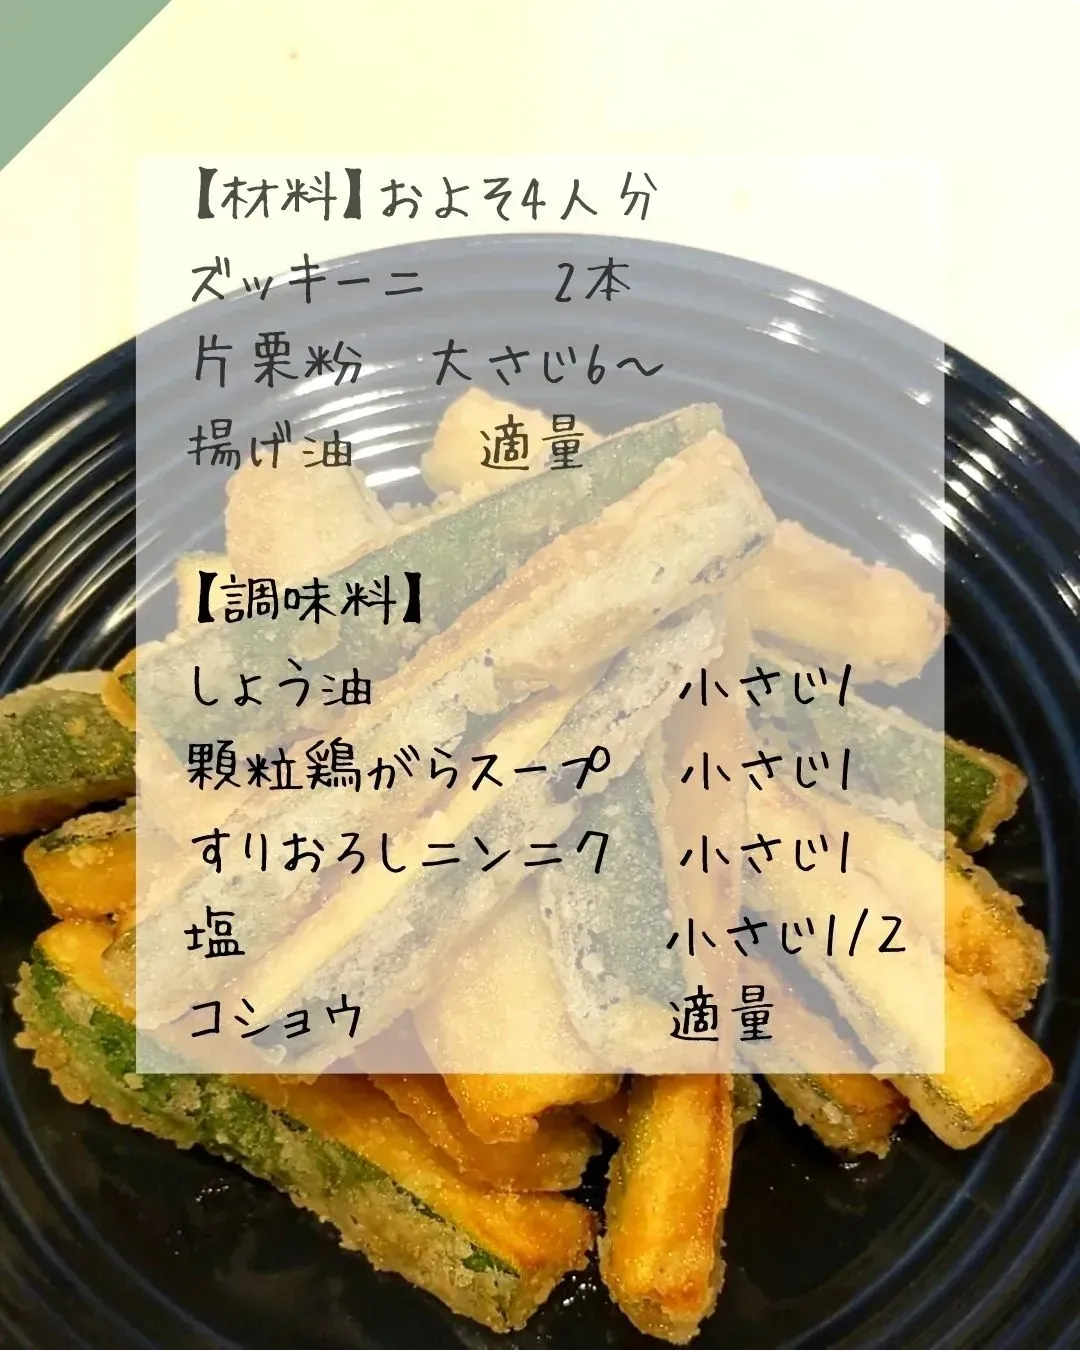 【材料】およそ4人分
ズッキーニ 2本
片栗粉 大さじ6～
揚げ油 適量
【調味料】
しょう油 小さじ1
顆粒鶏がらスープ 小さじ1
すりおろしニンニク 小さじ1
塩 小さじ1/2
コショウ 適量